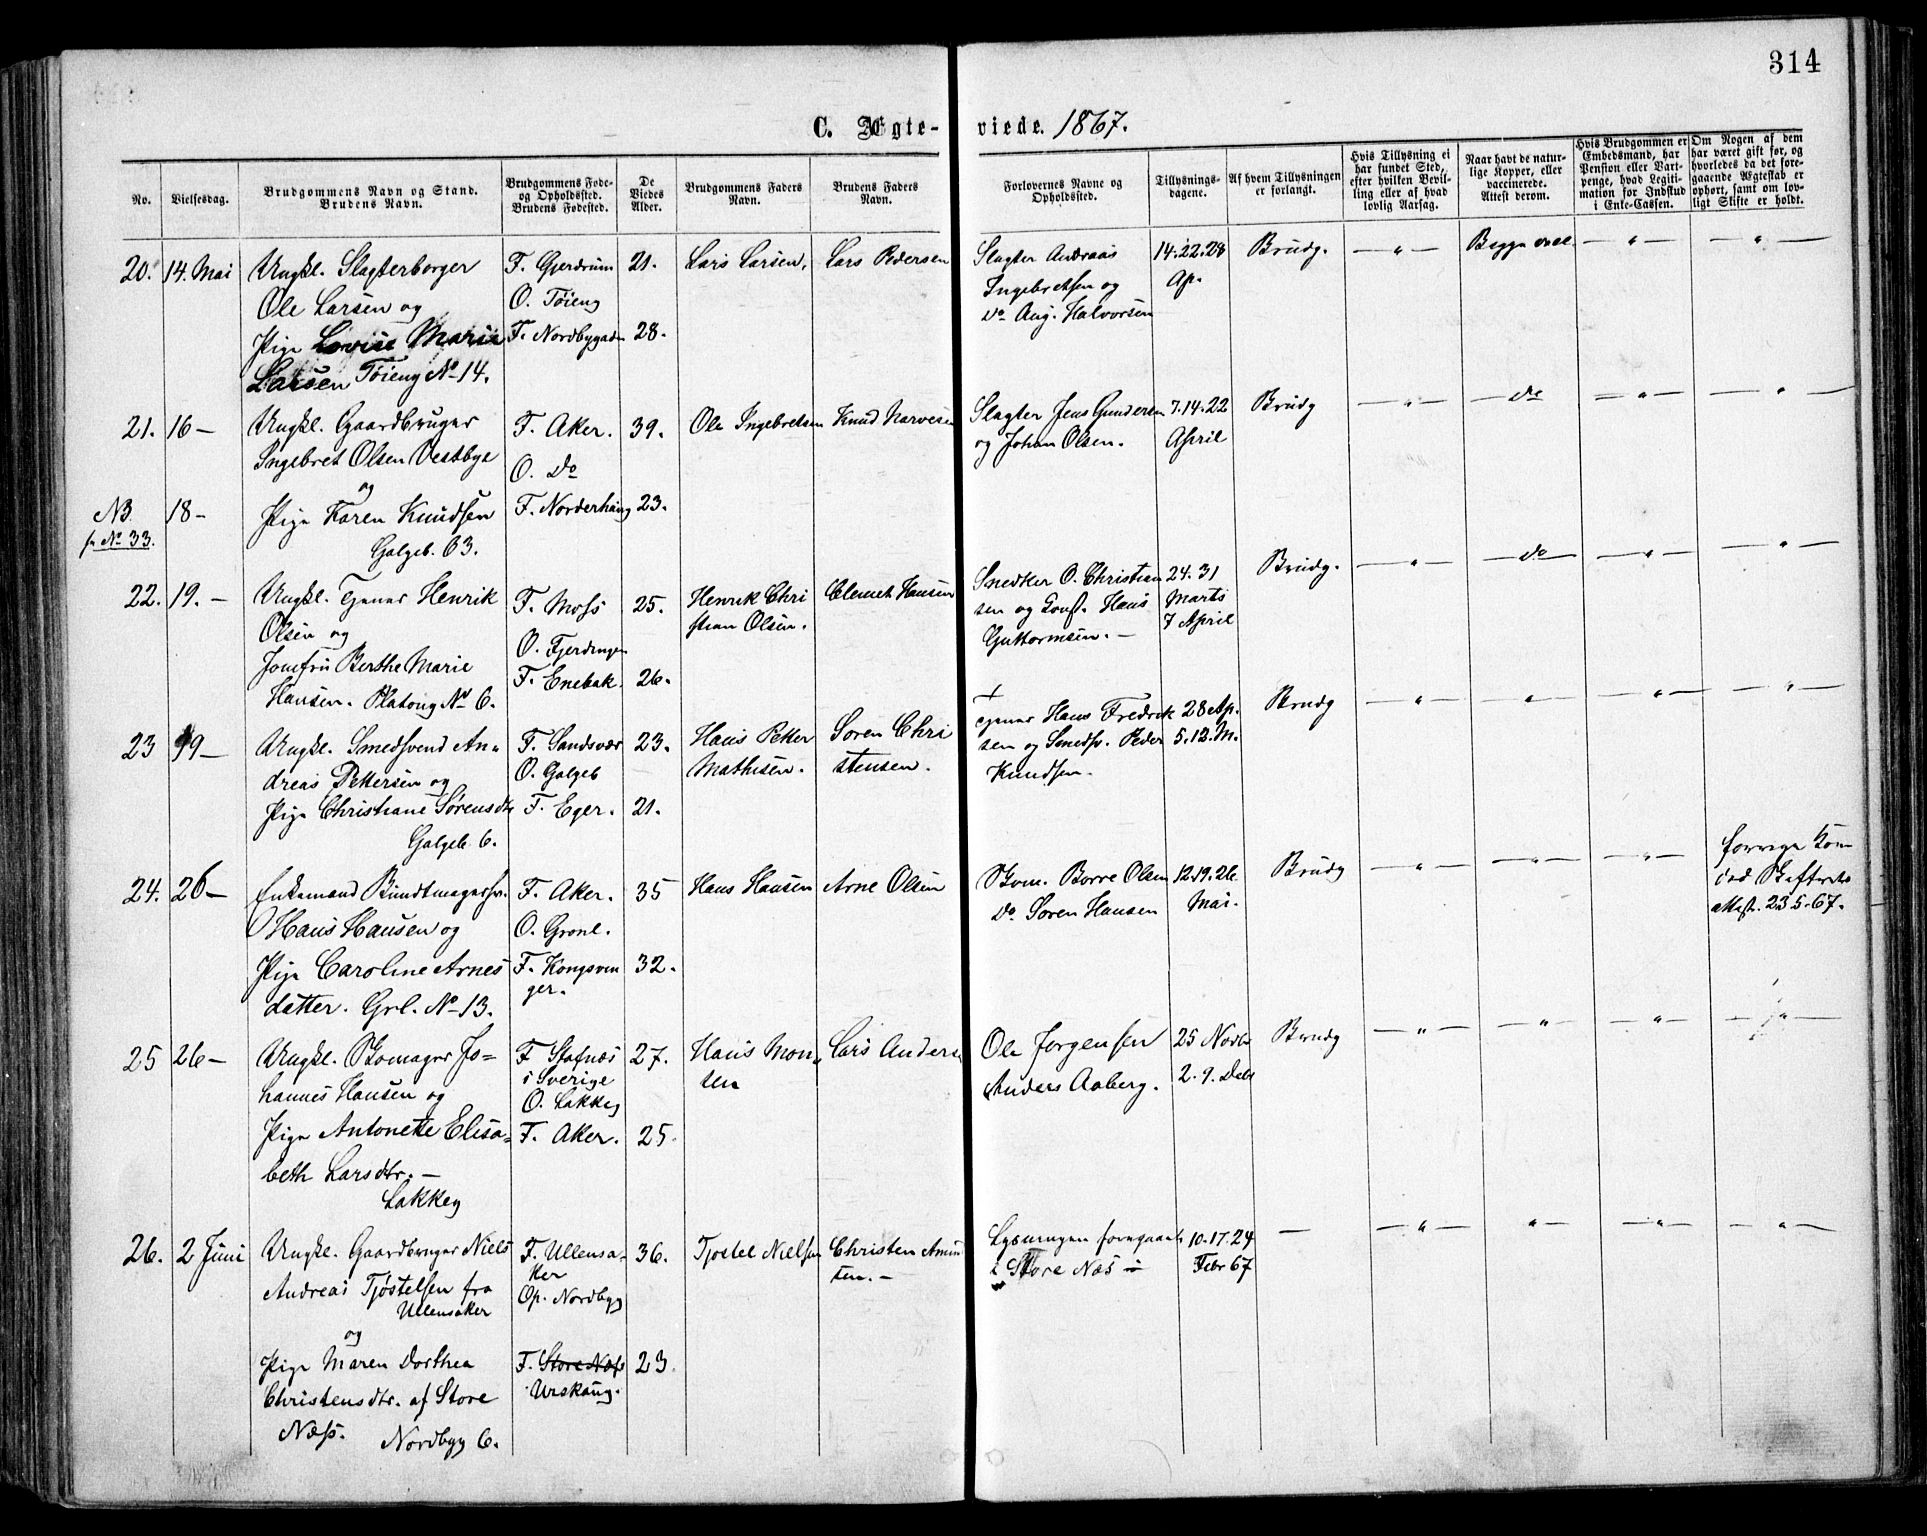 314
C. Ægte-viede. 1867.
No.
Vielsesdag.
Brudgommens Navn og Stand.
Brudens Navn.
Brudgommens Føde-
og Opholdssted.
Brudens Fødested.
De
Viedes
Alder.
Brudgommens Faders
Navn.
Brudens Faders
Navn.
Forlovernes Navne og
Opholdssted.
Tillysnings-
dagene.
Af hvem Tillysningen
er forlangt.
Hvis Tillysning ei
har fundet Sted,
efter hvilken Bevil-
ling eller af hvad
lovlig Aarsag.
Naar havt de natur-
lige Kopper, eller
vaccinerede.
Attest derom.
Hvis Brudgommen er
Embedsmand, har
Pension eller Vart-
penge, hvad Legiti-
mation for Indskud
i Enke-Cassen.
Om Nogen af dem
har været gift før, og
hvorledes da det fore-
gaaende Ægteskab er
ophørt, samt om lov-
ligt Skifte er holdt.
20. 14. Mai
Ungkl. Slagterborger
Ole Larsen og
Pige Lovise Marie
Larsen Tøieng No 14.
F. Gjerdrum
O. Tøieng
F. Nordbygaden
21.
28.
Lars Larsen.
Lars Pedersen
Slagter Andreas
Ingebretsen og
Do Aug. Halvorsen
14. 22. 28
Ap.
Brudg.
— " —
Begge vacc.
— " —
— " —
21. 16 —
Ungkl. Gaardbruger
Ingebret Olsen Vestbye
og
Pige Karen Knudsen
Galgeb. 63.
F. Aker.
O. Do
F. Norderhaug
39.
23.
Ole Ingebretsen
Knud Narvesen
Slagter Jens Gundersen
og Johan Olsen.
7. 14. 22
April
Brudg
— " —
— Do —
— " —
— " —
NB. 18 —
No 33.
22. 19. —
Ungkl. Henrik
Olsen og
Jomfru Berthe Marie
Hansen. Platoug No 6.
F. Moss
O. Fjerdingen
F. Enebak.
25.
26.
Henrik Chri
stian Olsen.
Clemet Hansen
Snedker O. Christian
sen og Hans
Guttormsen. —
24. 31
Marts
7 April
Brudg.
— " —
— Do —
— " —
— " —
23 19 —
Ungkl. Smedsvend An-
dreas Pettersen og
Pige Christiane Sørensdtr
Galgeb. 6.
F. Sandsvær
O. Galgeb
F. Eger.
23.
21.
Hans Petter
Mathisen.
Søren Chri
stensen.
+
Hans Fredrik
sen og Smedsv. Peder
Knudsen.
28 Ap.
5. 12. M.
Brudg
— " —
— " —
— " —
— " —
24. 26 —
Enkemand Bundtmagersv.
Hans Hansen og
Pige Caroline Arnes
datter. Grl. No 13.
F. Aker.
O. Grønl.
F. Kongsvin
ger.
35
32.
Hans Hansen
Arne Olsen
Borre Olsen
Do Søren Hansen
12. 19. 26.
Mai.
Brudg
— " —
— " —
— " —
23 5 - 67.
25 26 —
Ungkl. Skomager Jo-
hannes Hansen og
Pige Antonette Elisa-
beth Larsdtr. —
Lakkeg
F Stafnæs
i Sverige
O. Lakkeg
F. Aker.
27.
25.
Hans Mon-
sen
Lars Andersen
Ole Jørgensen
Anders Aaberg.
25 Novbr
2. 9. Debr
Brudg
— " —
— " —
— " —
26. 2 Juni
Ungkl. Gaardbruger Niels
Andreas Tjøstelsen fra
Ullensaker
og
Pige Maren Dorthea
Christensdtr. af Store
Næss.
Nordbyg 6.
F. Ullensa-
ker
Op. Nordbyg
F. Store Næs
Urskoug.
36.
23.
Tjøstel Nielsen
Christen Amun
sen. —
Lysningen foregaaet
i Store Næs
10. 17. 24
Febr 67
—
— " —
— " —
— " —
— " —